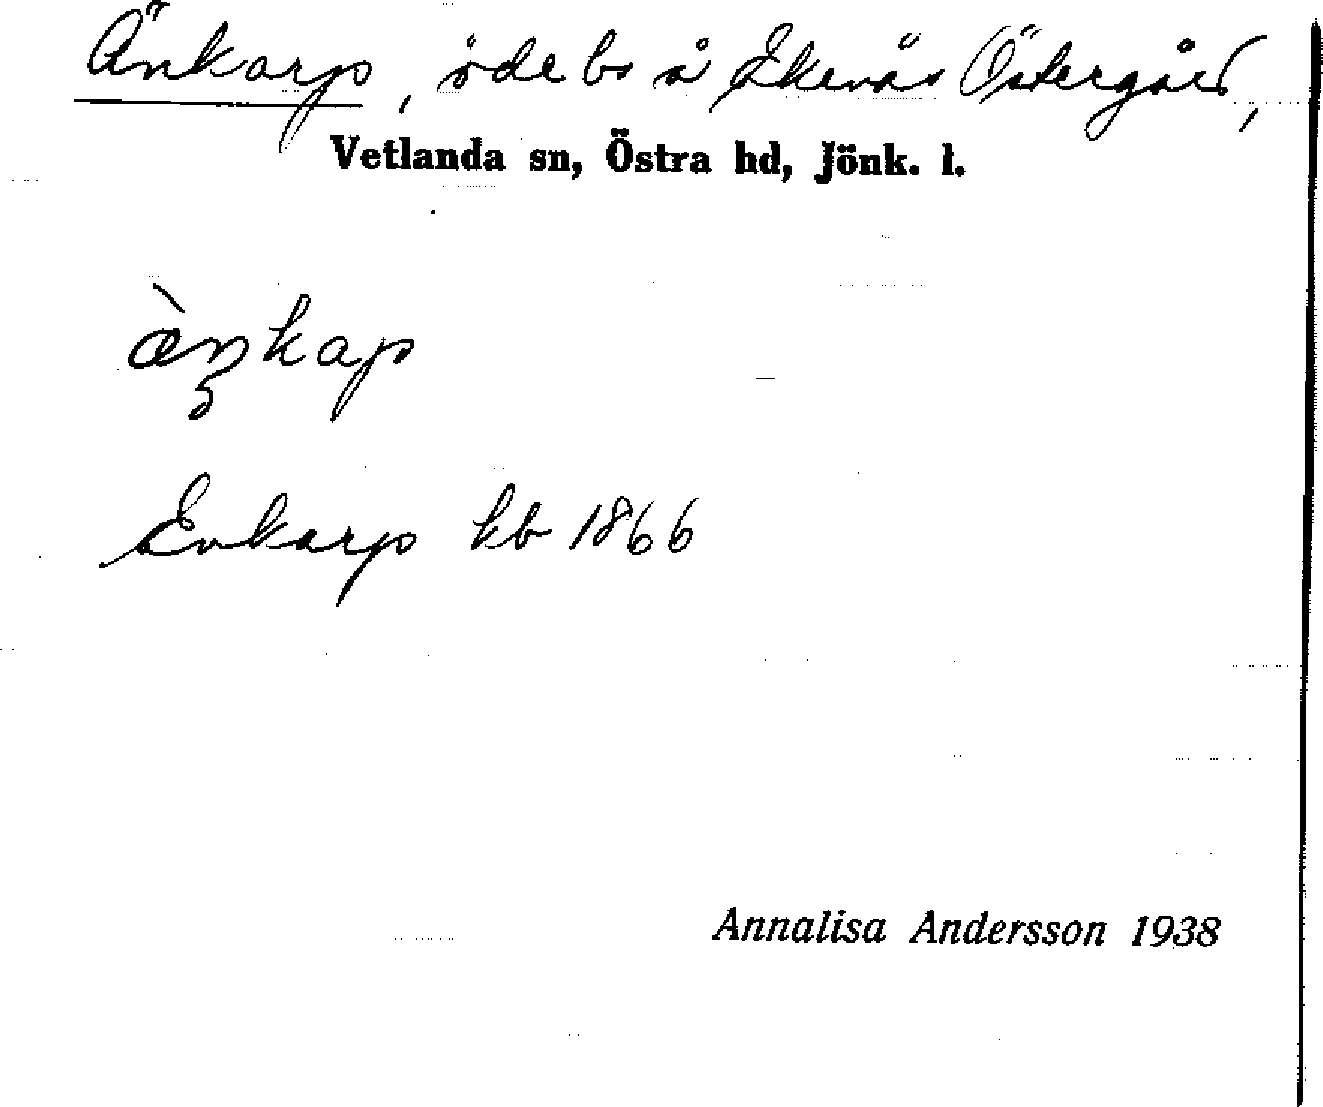 Änkarp, öde bs å Ekenäs Östergård,
Vetlanda sn, Östra hd, Jönk. l.
æ̀n̥kap
Enkarp kb 1866
Annalisa Andersson 1938